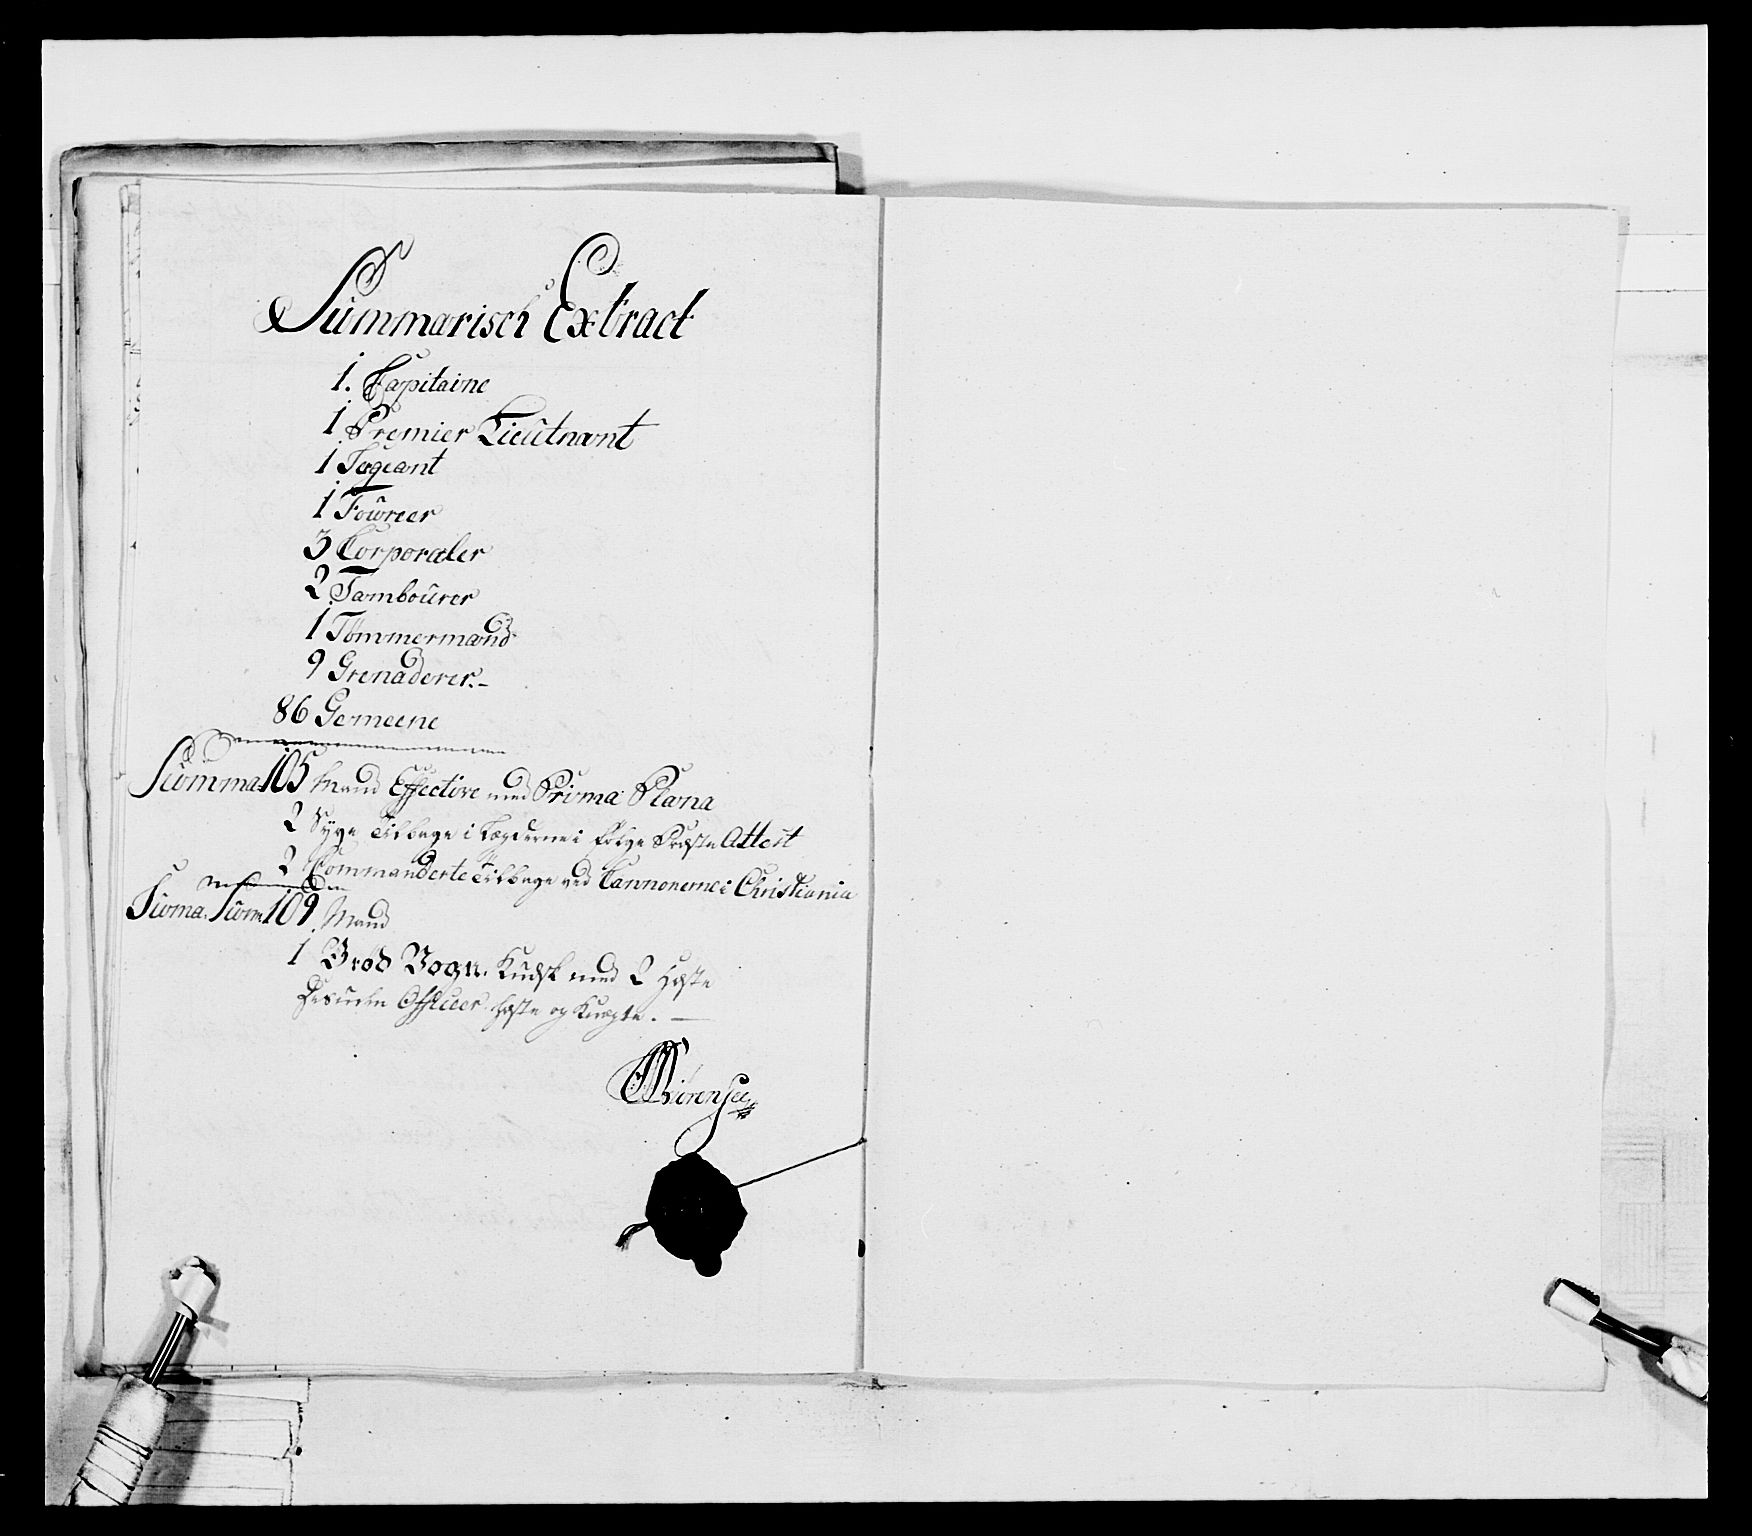 Summarisch Extract
1. Capitaine
1 Premier Lieutnant
1 Sergeant
1 Foureer
3 Corporaler
2 Tambourer
1 Tømmermand
9 Grenaderer.-
86 Gemeene
Summa 105 Mand Effective med Prima Plana
2 Syge Tilbage i Lægderne i følge Præste Attest
2 Commanderte Tilbage ved Cannonerne i Christiania
Suma. Sum 109. Mand
1 Brød Vogn. Kudsk med 2 Heste
Desuden Officeer Heste og Knægte. —